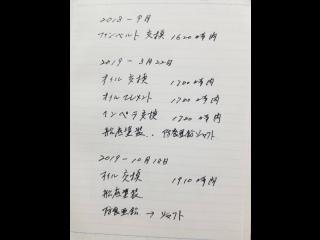 2018-9月
ファンベルト 交換 1620時間
2019-3月22日
オイル 交換 1700時間
オイルエレメント 1700時間
インペラ交換 1700時間
船底塗装、防食亜鉛シャフト
2019-10月18日
オイル 交換 1910時間
船底塗装
防食亜鉛 → シャフト